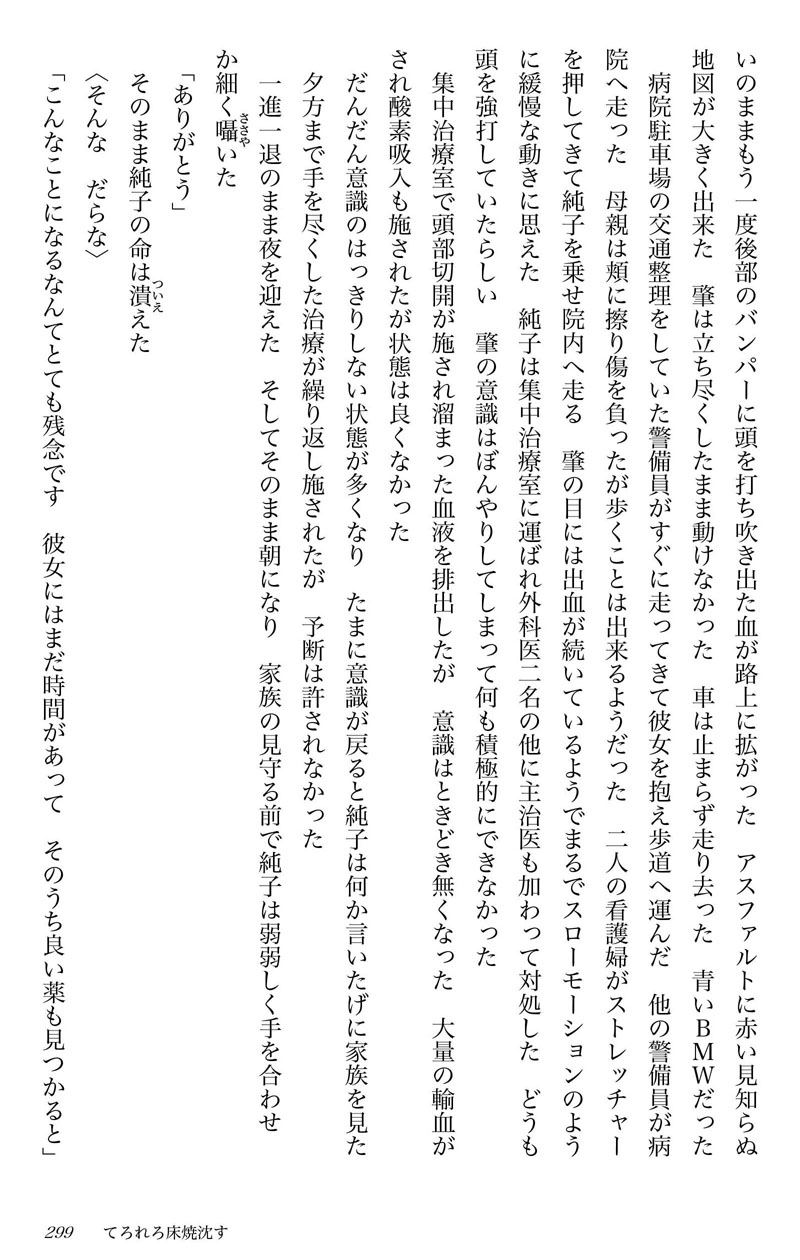 いのままもう一度後部のバンパーに頭を打ち吹き出た血が路上に拡がった　アスファルトに赤い見知らぬ
地図が大きく出来た　肇は立ち尽くしたまま動けなかった　車は止まらず走り去った　青いＢＭＷだった
　病院駐車場の交通整理をしていた警備員がすぐに走ってきて彼女を抱え歩道へ運んだ　他の警備員が病
院へ走った　母親は頬に擦り傷を負ったが歩くことは出来るようだった　二人の看護婦がストレッチャー
を押してきて純子を乗せ院内へ走る　肇の目には出血が続いているようでまるでスローモーションのよう
に緩慢な動きに思えた　純子は集中治療室に運ばれ外科医二名の他に主治医も加わって対処した　どうも
頭を強打していたらしい　肇の意識はぼんやりしてしまって何も積極的にできなかった
　集中治療室で頭部切開が施され溜まった血液を排出したが　意識はときどき無くなった　大量の輸血が
され酸素吸入も施されたが状態は良くなかった
　だんだん意識のはっきりしない状態が多くなり　たまに意識が戻ると純子は何か言いたげに家族を見た
　夕方まで手を尽くした治療が繰り返し施されたが　予断は許されなかった
　一進一退のまま夜を迎えた　そしてそのまま朝になり　家族の見守る前で純子は弱弱しく手を合わせ
か細く囁いた
ささや
「ありがとう」
　そのまま純子の命は潰えた
ついえ
〈そんな　だらな〉
「こんなことになるなんてとても残念です　彼女にはまだ時間があって　そのうち良い薬も見つかると」
299　てろれろ床焼沈す